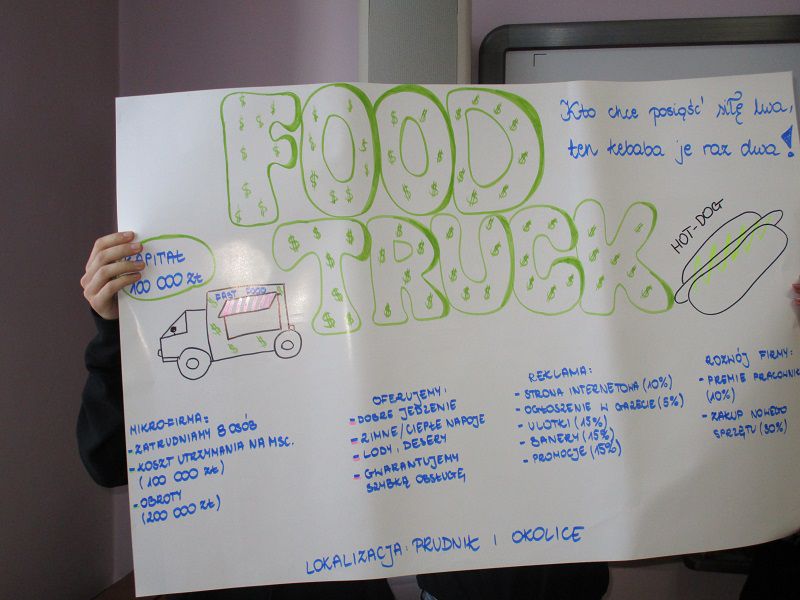 FOOD
TRUCK
Kto chce posiąść siłę lwa,
ten kebaba je raz dwa!
KAPITAŁ
100 000 zł
HOT-DOG
FAST FOOD
MIKRO-FIRMA:
- ZATRUDNIAMY 8 OSÓB
- KOSZT UTRZYMANIA NA MSC.
(100 000 ZŁ)
- OBROTY
(200 000 ZŁ)
OFERUJEMY:
- DOBRE JEDZENIE
- ZIMNE/CIEPŁE NAPOJE
- LODY, DESERY
- GWARANTUJEMY
SZYBKĄ OBSŁUGĘ,
REKLAMA:
- STRONA INTERNETOWA (10%)
- OGŁOSZENIE W GAZECIE (5%)
- ULOTKI (15%)
- BANERY (15%)
- PROMOCJE (15%)
ROZWÓJ FIRMY:
- PREMIE PRACOWNI
(10%)
- ZAKUP NOWEGO
SPRZĘTU (30%)
LOKALIZACJA: PRUDNIK I OKOLICE